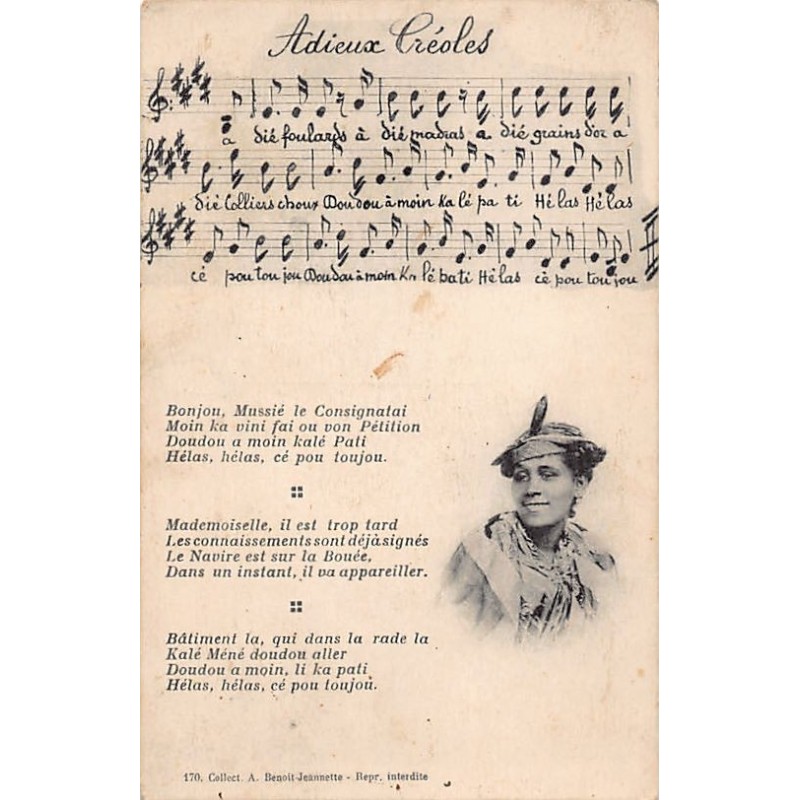 Adieux Créoles
a dié foulards à dié madras a dié grains d'or a
dié Colliers choux Doudou à moin Ka lé pa ti Hélas Hélas
cé pou tou jou Doudou à moin Ka lé pati Hélas cè pou tou jou
Bonjou, Mussié le Consignatai
Moin ka vini fai ou von Pétition
Doudou a moin kalé Pati
Hélas, hélas, cé pou toujou.
Mademoiselle, il est trop tard
Les connaissements sont déjà signés
Le Navire est sur la Bouée,
Dans un instant, il va appareiller.
Bâtiment la, qui dans la rade la
Kalé Méné doudou aller
Doudou a moin, li ka pati
Hélas, hélas, cé pou toujou.
170. Collect. A. Benoit-Jeannette - Repr. interdite